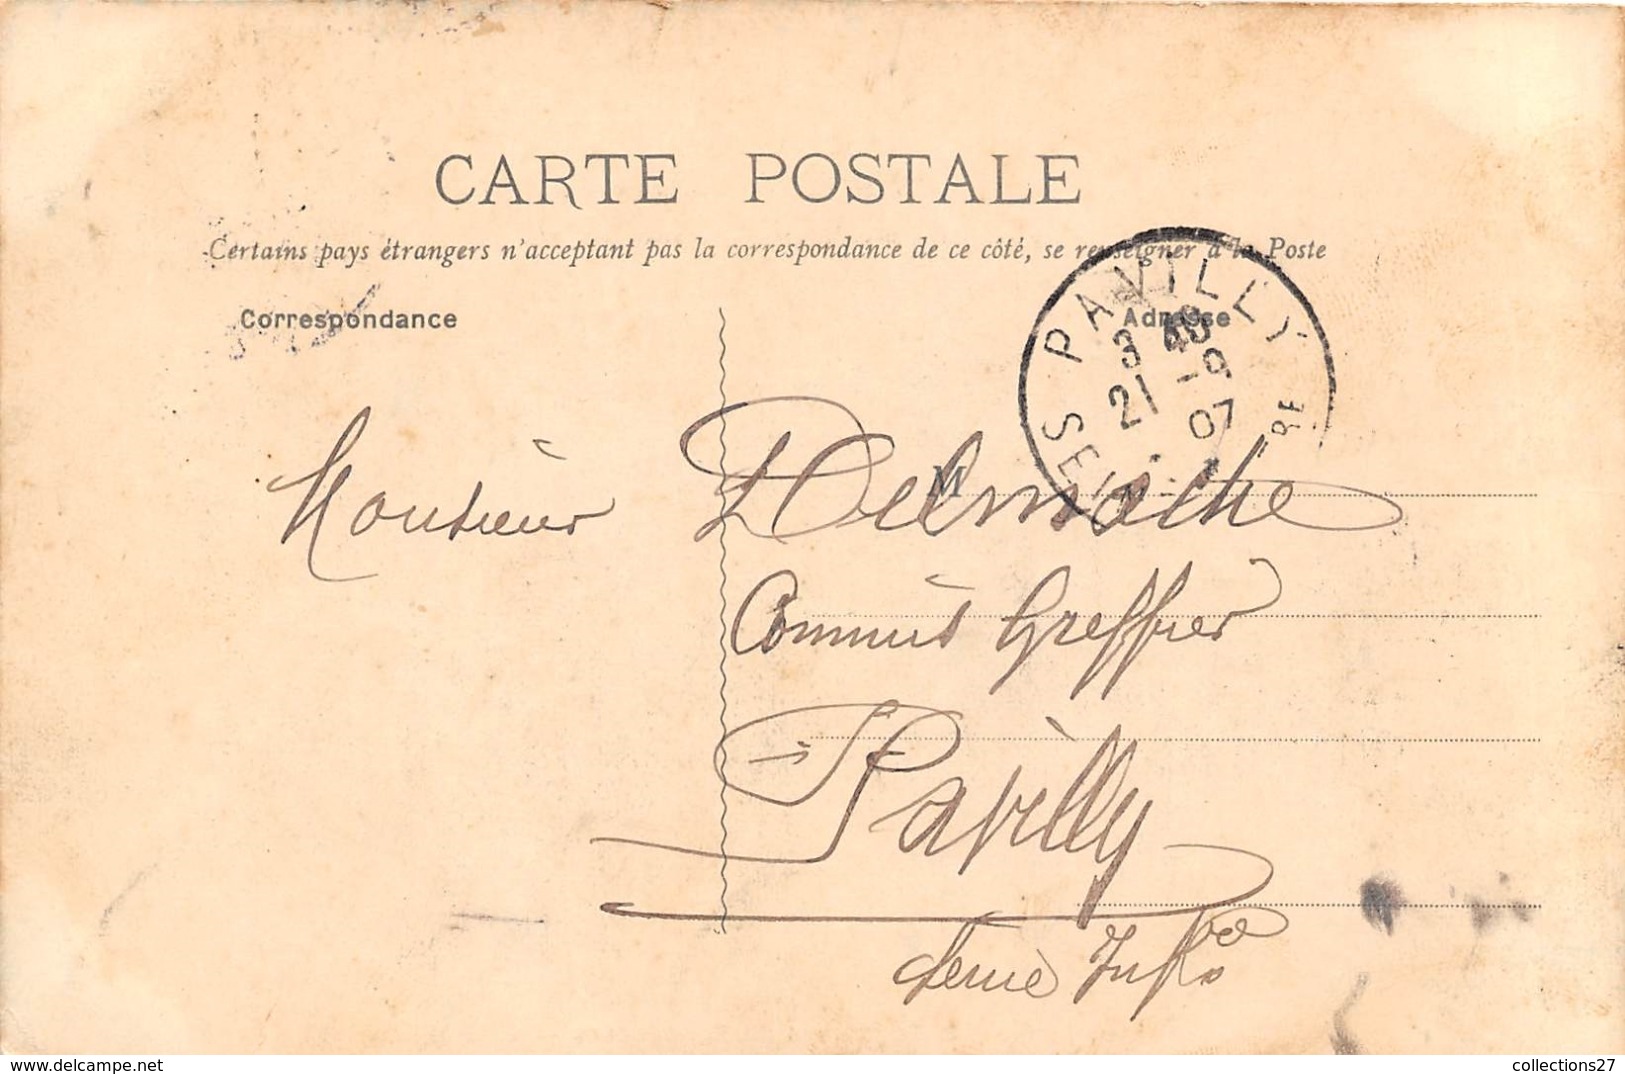 CARTE POSTALE
Certains pays étrangers n'acceptant pas la correspondance de ce côté, se renseigner à la Poste
Correspondance
Adresse
PAVILLY
3 40
21 -9
07
SEINE
RE
M
Monsieur Delmoche
Commis Greffier
Pavilly
Seine Infre
collections27